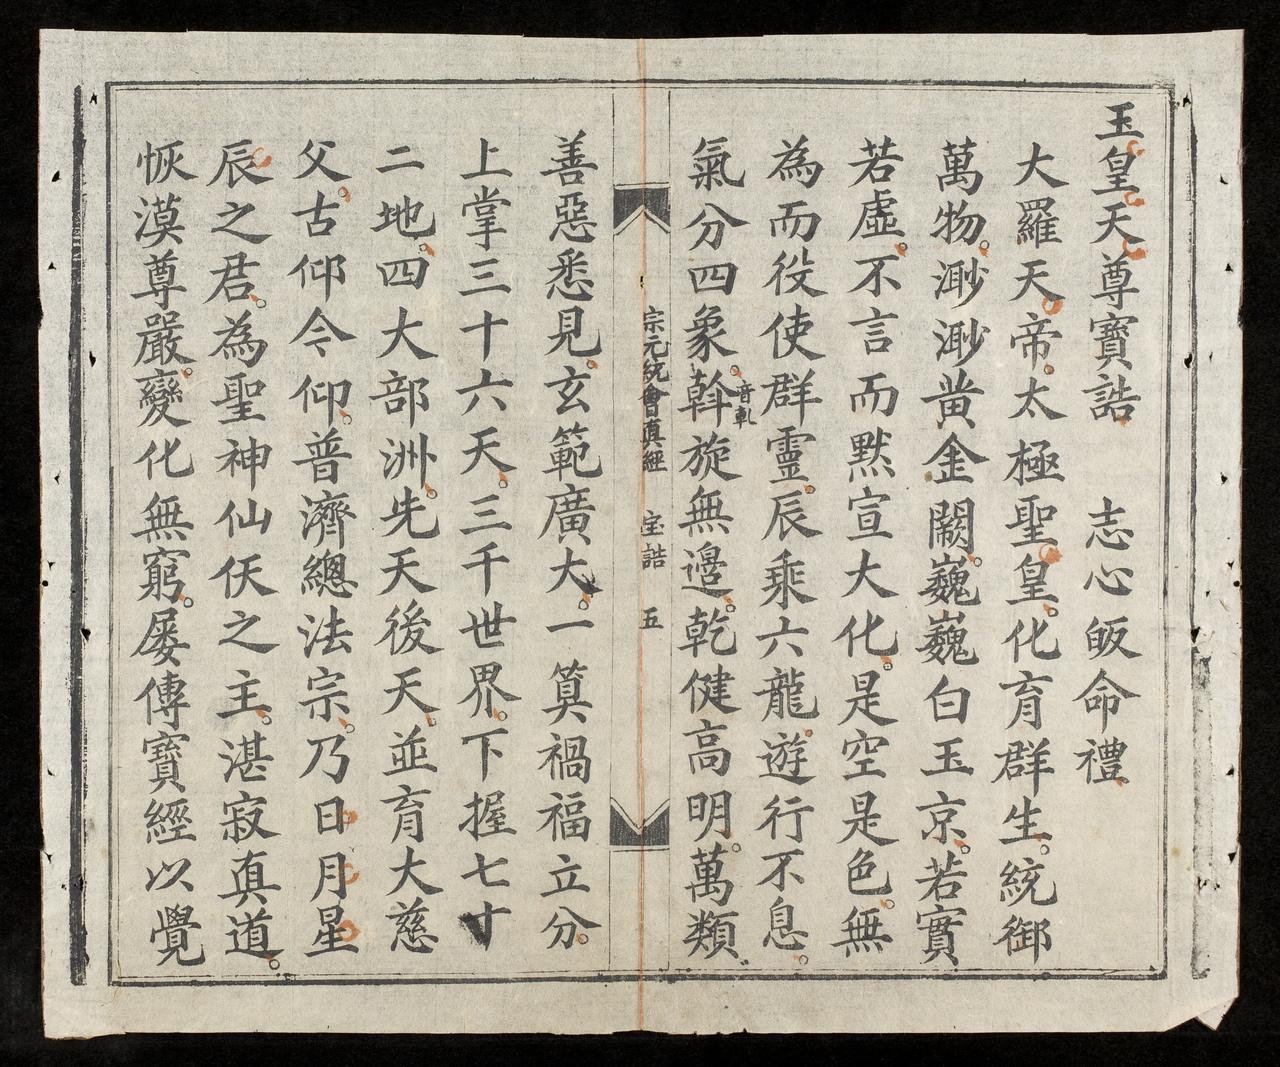 玉皇天尊寶誥　志心皈命禮
大羅天。帝。太極聖皇。化育群生。統御
萬物。渺渺黃金闕。巍巍白玉京。若實
若虛。不言而默宣大化。是空是色。無
為而役使群靈。辰乘六龍。遊行不息。
氣分四象。斡音軋旋無邊。乾健高明。萬類
宗元統會真經　宝誥　五
善惡悉見。玄範廣大。一算禍福立分。
上掌三十六天。三千世界。下握七十
二地。四大部洲。先天後天。並育大慈
父。古仰今仰。普濟總法宗。乃日月星
辰之君。為聖神仙佛之主。湛寂真道。
恢漠尊嚴。變化無窮。屡傳寶經以覺